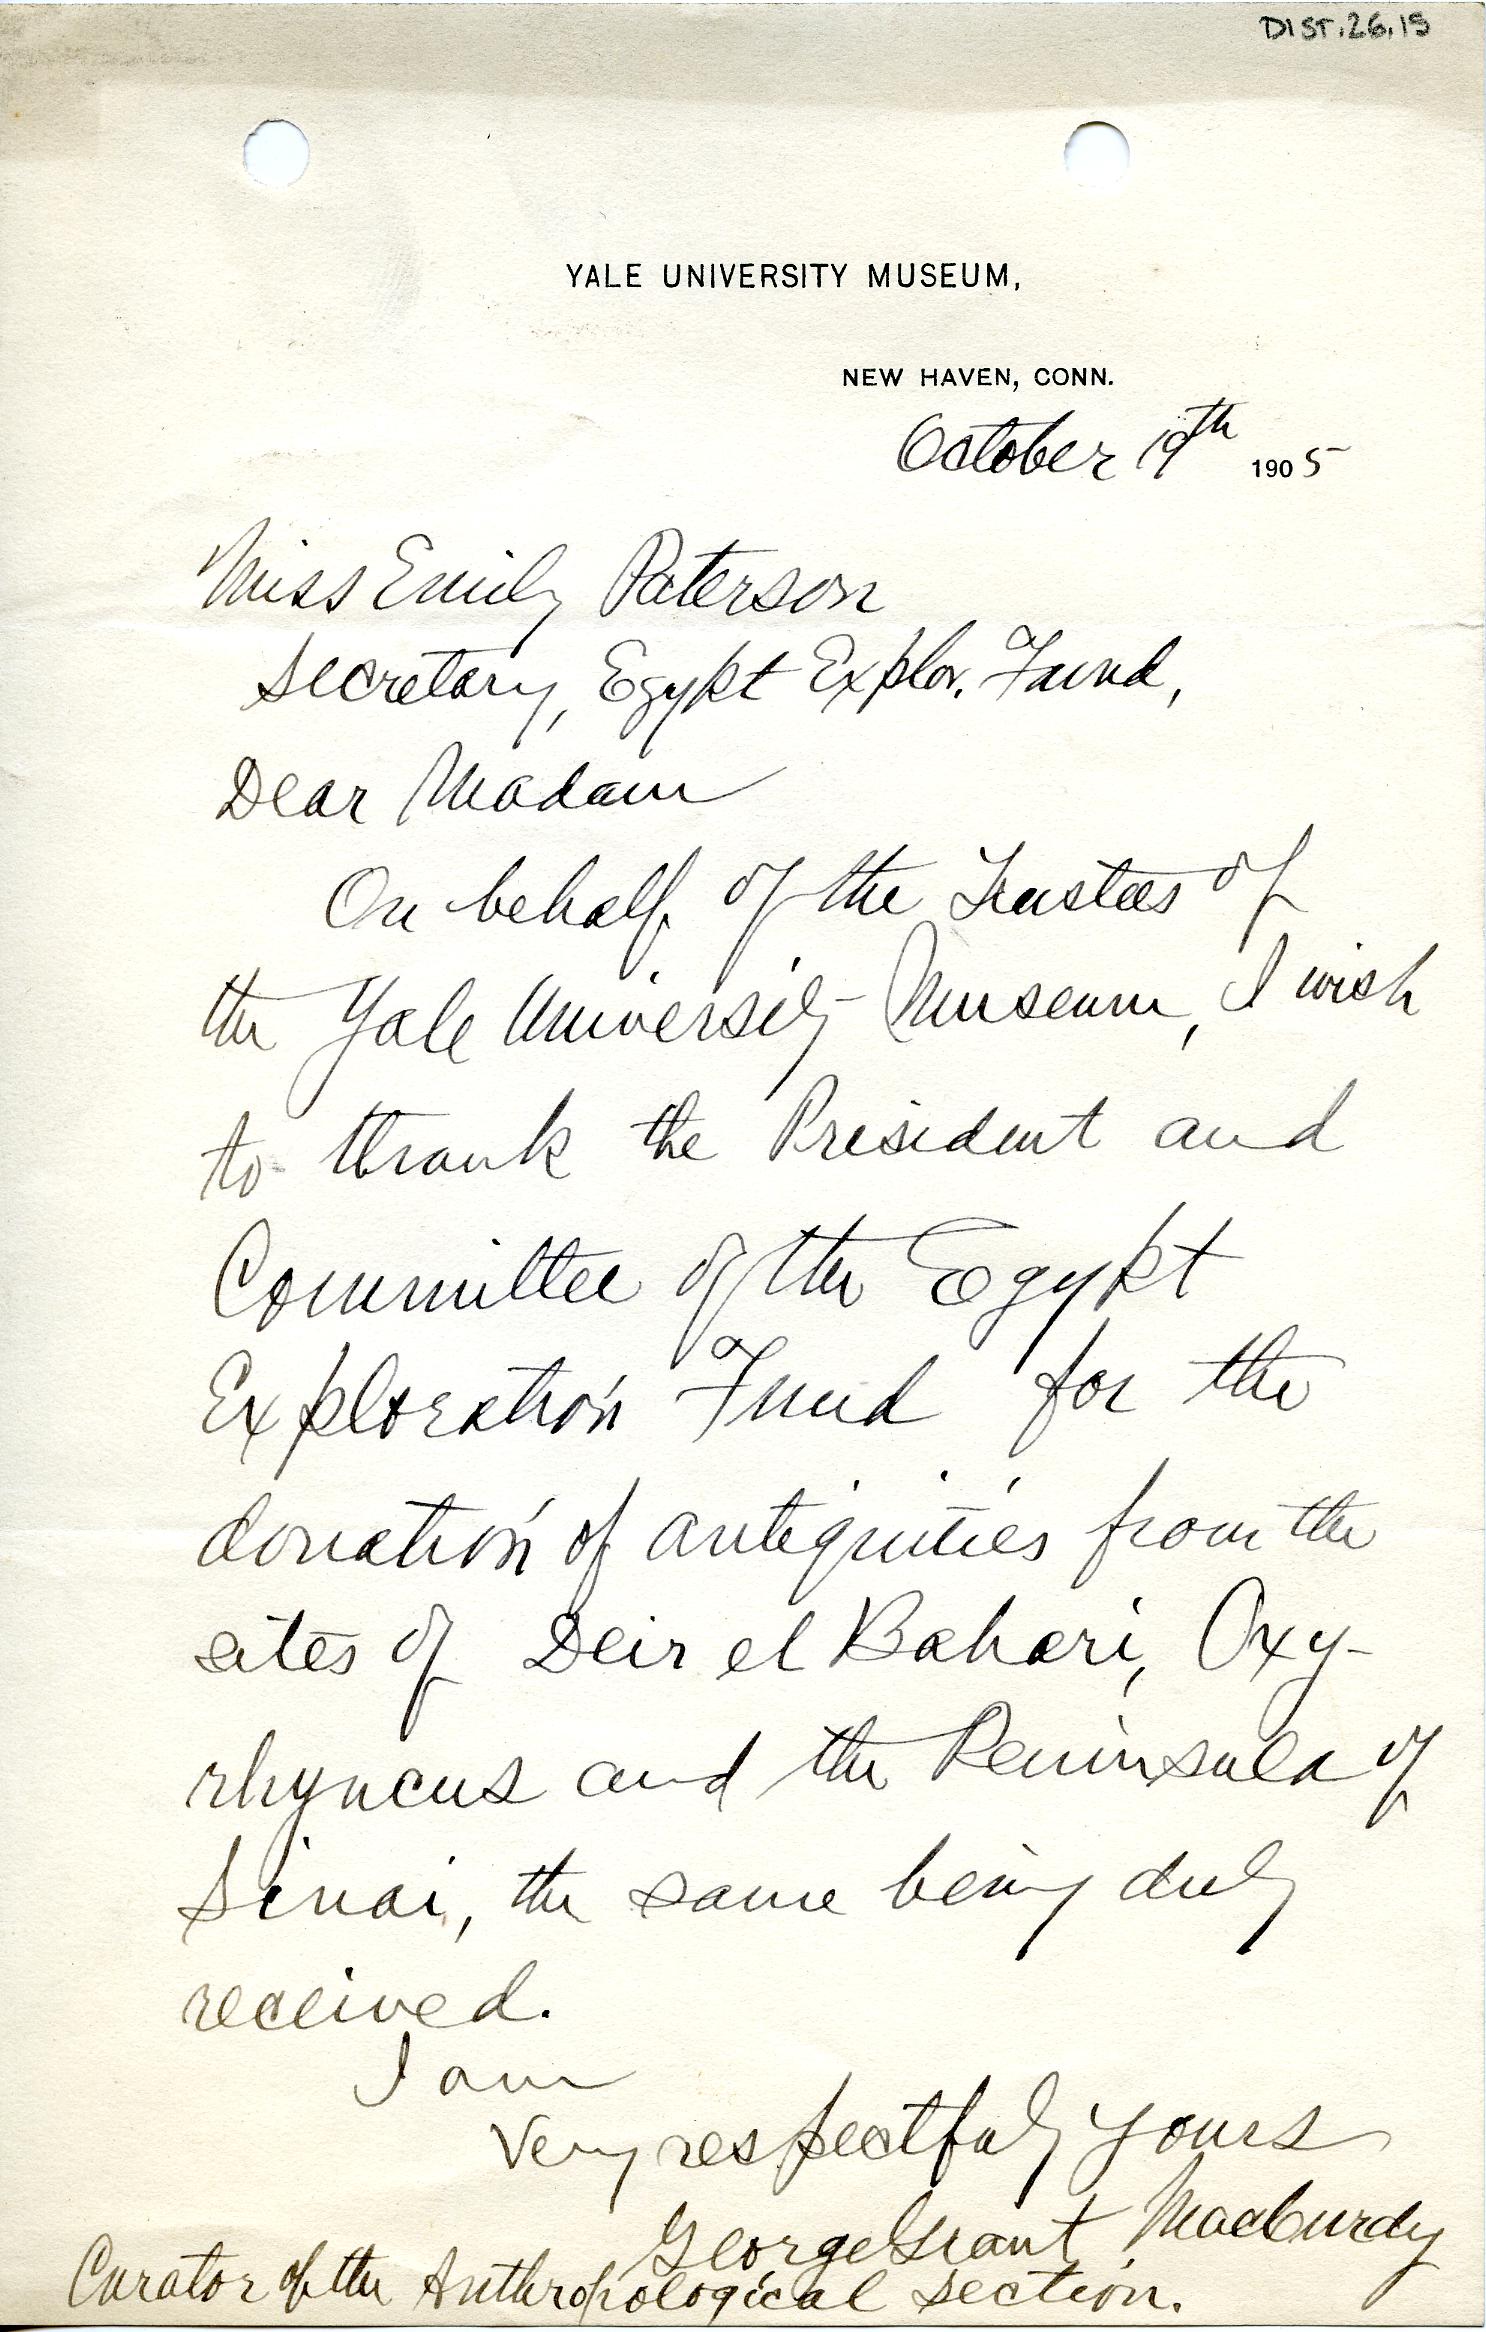 DIST.26.19
YALE UNIVERSITY MUSEUM,
NEW HAVEN, CONN.
October 19th 1905
Miss Emily Paterson
Secretary, Egypt Explor. Fund,
Dear Madam
On behalf of the Trustees of
the Yale University Museum, I wish
to thank the President and
Committee of the Egypt
Exploration Fund for the
donation of antiquities from the
sites of Deir el Bahari, Oxy-
rhyncus and the Peninsula of
Sinai, the same being duly
received.
I am
Very respectfully yours
George Grant MacCurdy
Curator of the Anthropological section.